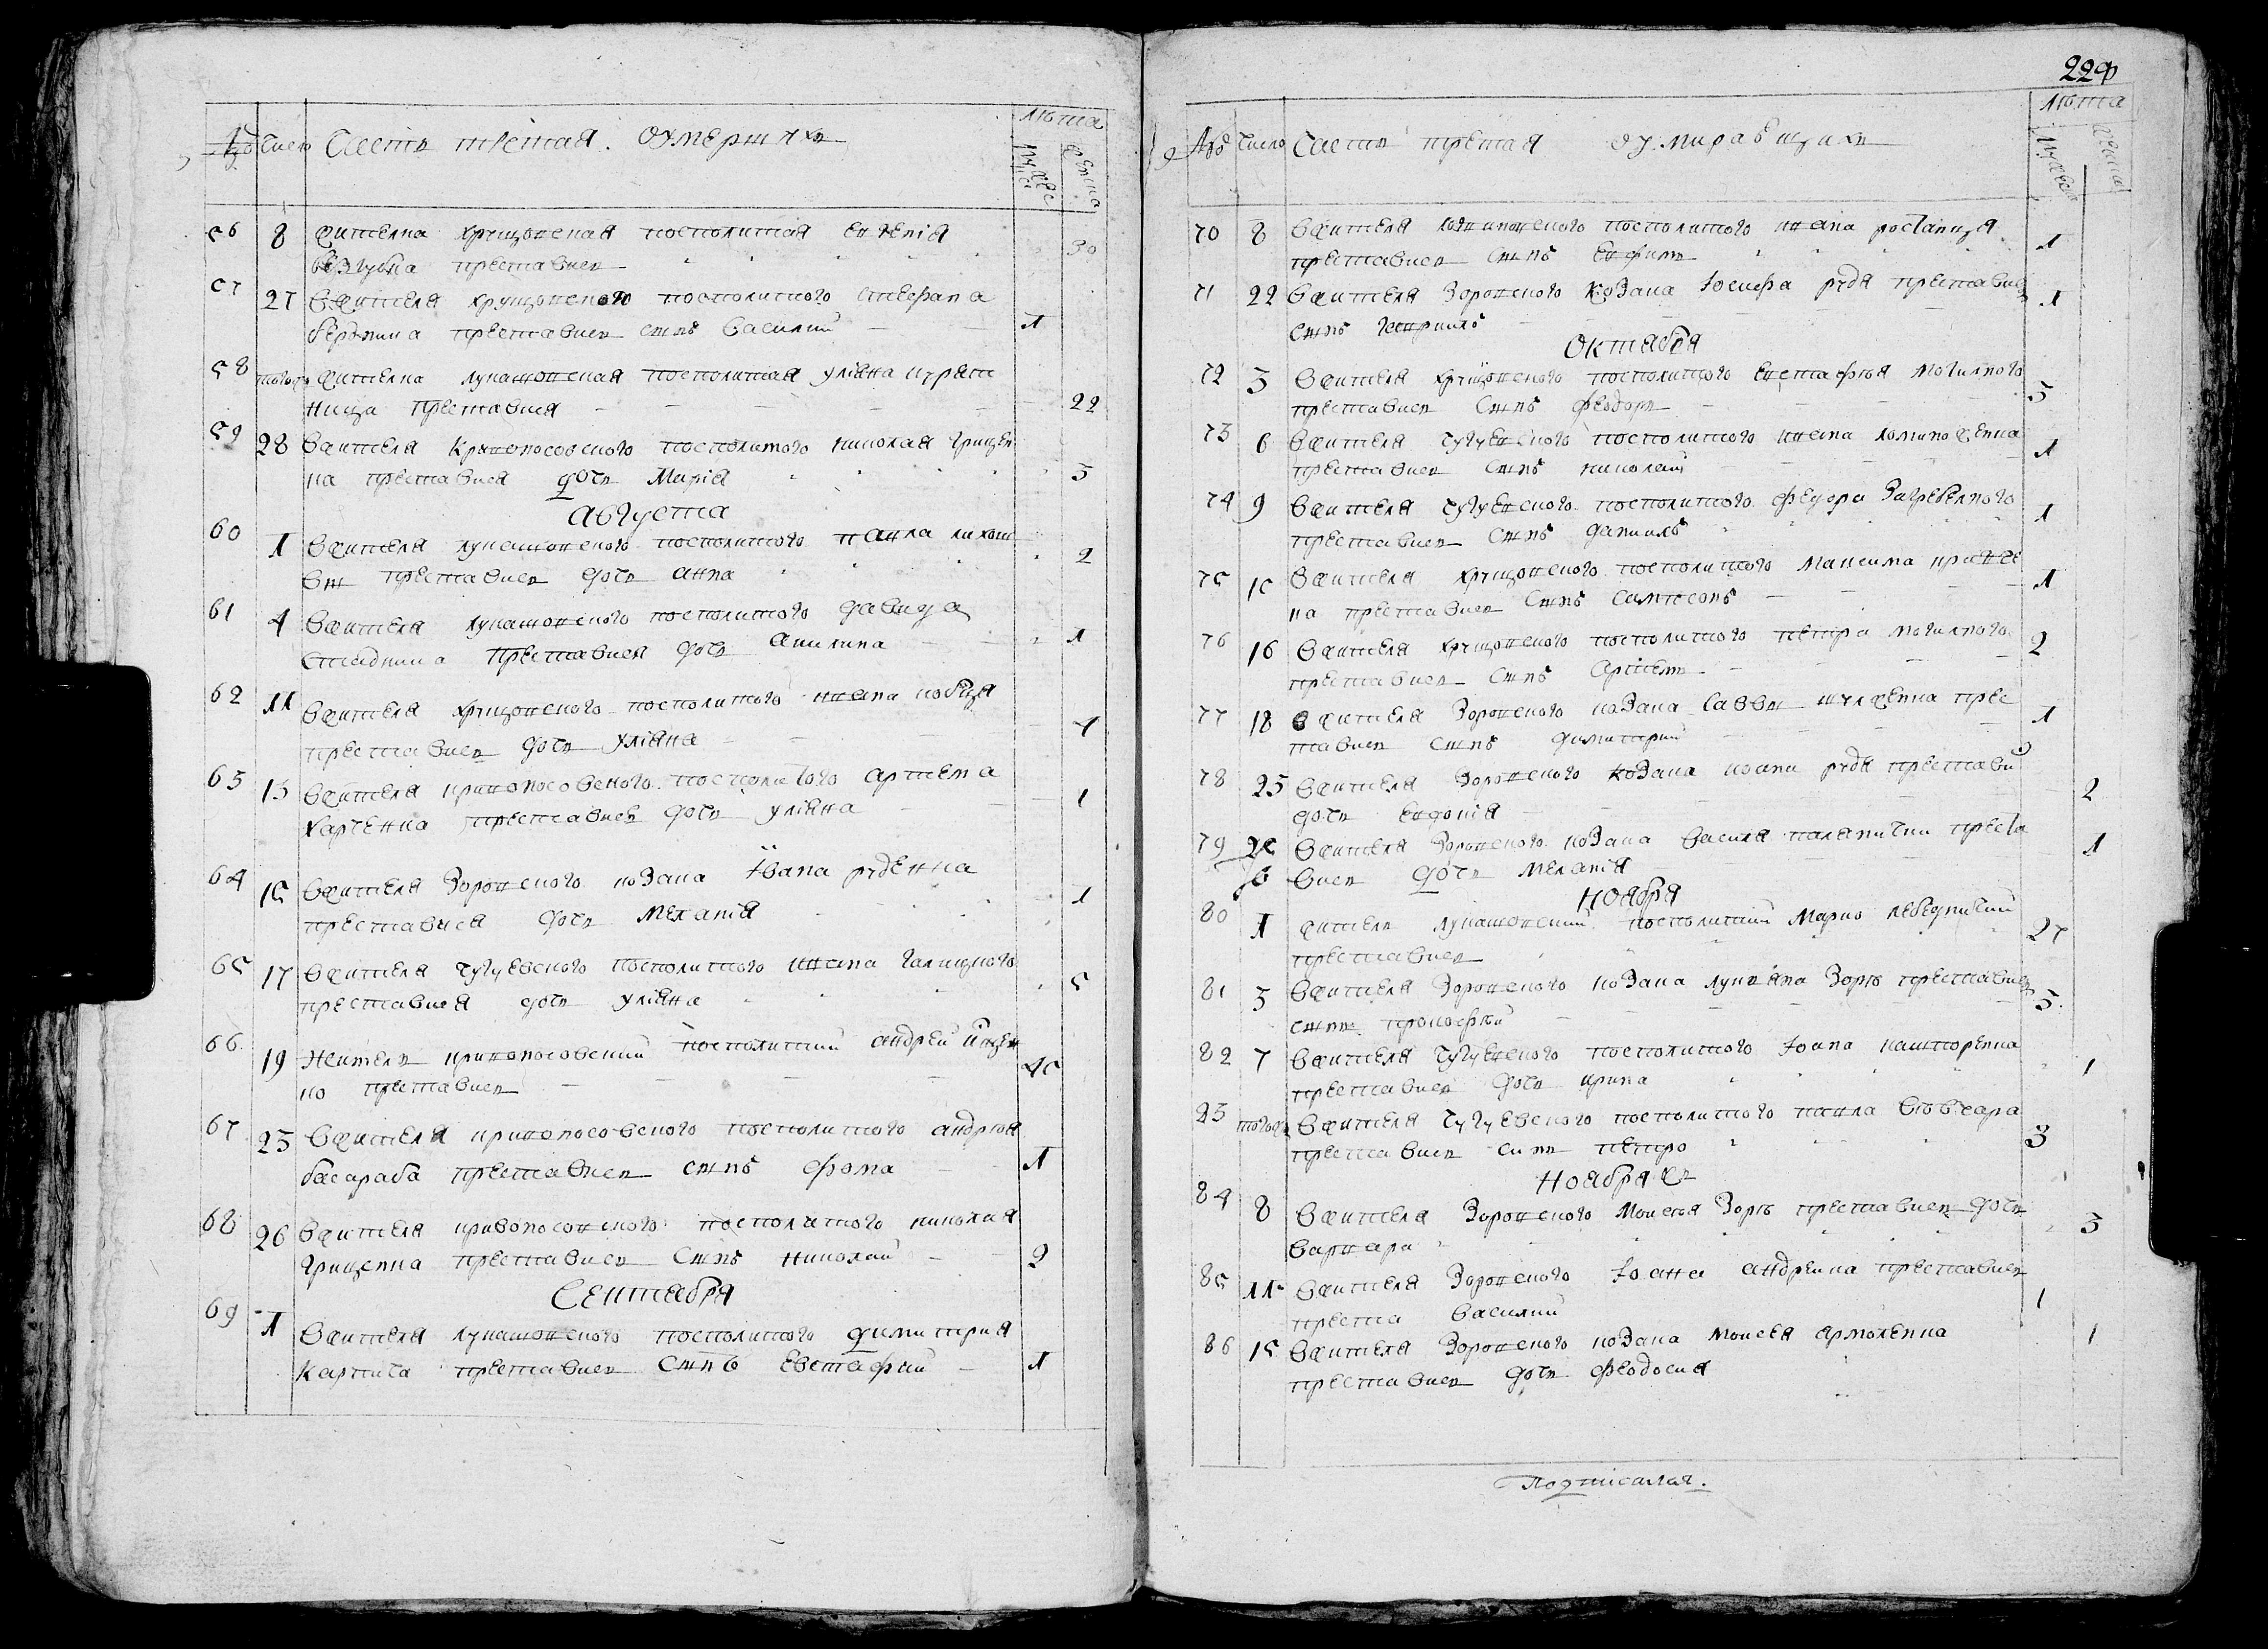 Число Часть третая. О умершихъ Лѣта
56 8 жителка хрущовская посполитая Евгенія
преставись 30
57 27 Вжителя хрущовского посполитого стефана
преставись сынъ Василий 1
58 тогожъ жителка лукашовская посполитая Уліяна
преставися 22
59 28 Вжителя Кривоносовского посполитого николая Грицен
ка преставися дочь Марія 3
Августа
60 1 Вжителя лукашовского посполитого павла
преставись дочь анна 2
61 4 Вжителя лукашовского посполитого давида
преставися дочь акилина 1
62 11 Вжителя хрущовского посполитого ивана кобця
преставись дочь уліяна
63 13 Вжителя кривоносовского посполитого артема
Харченка преставись дочь уліяна 1
64 15 Вжителя Зоровского козака Ивана рудєнка
преставися дочь Меланія 1
65 17 Вжителя Чугуевского посполитого ивана галицкого
преставися дочь уліяна 5
66 19 Житель кривоносовский посполитий андрей
ко преставись 45
67 23 Вжителя кривоносовского посполитого андрея
басараба преставись сынъ фома 1
68 26 Вжителя кривоносовского посполитого николая
Грицєнка преставись Сынъ николай 2
Сентября
69 1 Вжителя лукашовского посполитого димитрия
Карпича преставись Сынъ Евстафий 1
224
Число Часть третая о умиравщихъ Лѣта
70 8 Вжителя посполитого ивана
преставись Сынъ Ефимъ 1
71 22 Вжителя Зоровского козака Іосифа рудя преставись
сынъ Гавриилъ 1
Октября
72 3 Вжителя хрущовского посполитого Евстафия Могилного
преставись Сынъ феодоръ 3
73 6 Вжителя Чугуевского посполитого ивана
преставись Сынъ николай 1
74 9 Вжителя Чугуевского посполитого федора Загребелного
преставись Сынъ данилъ 1
75 15 Вжителя хрущовского посполитого Максима
ка преставись Сынъ Сампсонъ 1
76 16 Вжителя хрущовского посполитого петра могилного
преставись Сынъ Артемъ 2
77 18 Вжителя Зоровского козака Саввы шулженка прес
тавись Сынъ димитрий 1
78 23 Вжителя Зоровского козака ивана рудя преставис
дочь Евдокія 2
79 Вжителя Зоровского козака Василя преста
вись дочь Меланія 1
Ноября
80 1 житель лукашовский посполитий Марко
преставись 27
81 3 Вжителя Зоровского козака лукяна Зорѣ преставись
сынъ прокофий 3
82 7 Вжителя Чугуевского посполитого Іоана
преставись дочь ирина 1
83 тогожъ Вжителя Чугуевского посполитого павла
преставись синъ петро 3
Ноября
84 8 Вжителя Зоровского Моисея Зорѣ преставись дочь
Варвара 3
85 11 Вжителя Зоровского Іоана андрейка преставись
преста Василий 1
86 15 Вжителя Зоровского козака Моисея Ярмоленка 1
преставись дочь феодосия
Подписался.